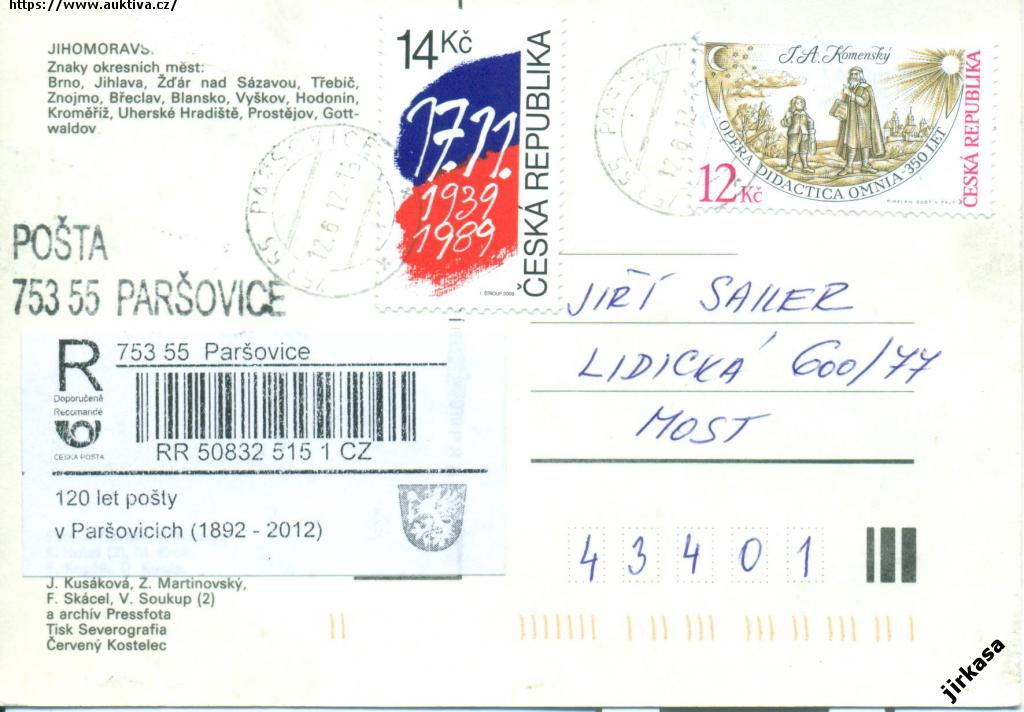 https://www.auktiva.cz/
JIHOMORAVS
Znaky okresních měst:
Brno, Jihlava, Žďár nad Sázavou, Třebíč,
Znojmo, Břeclav, Blansko, Vyškov, Hodonín,
Kroměříž, Uherské Hradiště, Prostějov, Gott-
waldov
14 Kč
17.11.
1939
1989
ČESKÁ REPUBLIKA
I. ŠTROUP 2009
J. A. Komenský
OPERA DIDACTICA OMNIA · 350 LET
12 Kč
ČESKÁ REPUBLIKA
755 55 PARŠOVICE
12.6.12-15
POŠTA
753 55 PARŠOVICE
JIŘÍ SAILER
LIDICKÁ 600/77
MOST
43401
R
Doporučeně
Recomandé
ČESKÁ POŠTA
753 55 Paršovice
RR 50832 515 1 CZ
120 let pošty
v Paršovicích (1892 - 2012)
J. Kusáková, Z. Martinovský,
F. Skácel, V. Soukup (2)
a archív Pressfota
Tisk Severografia
Červený Kostelec
jirkasa